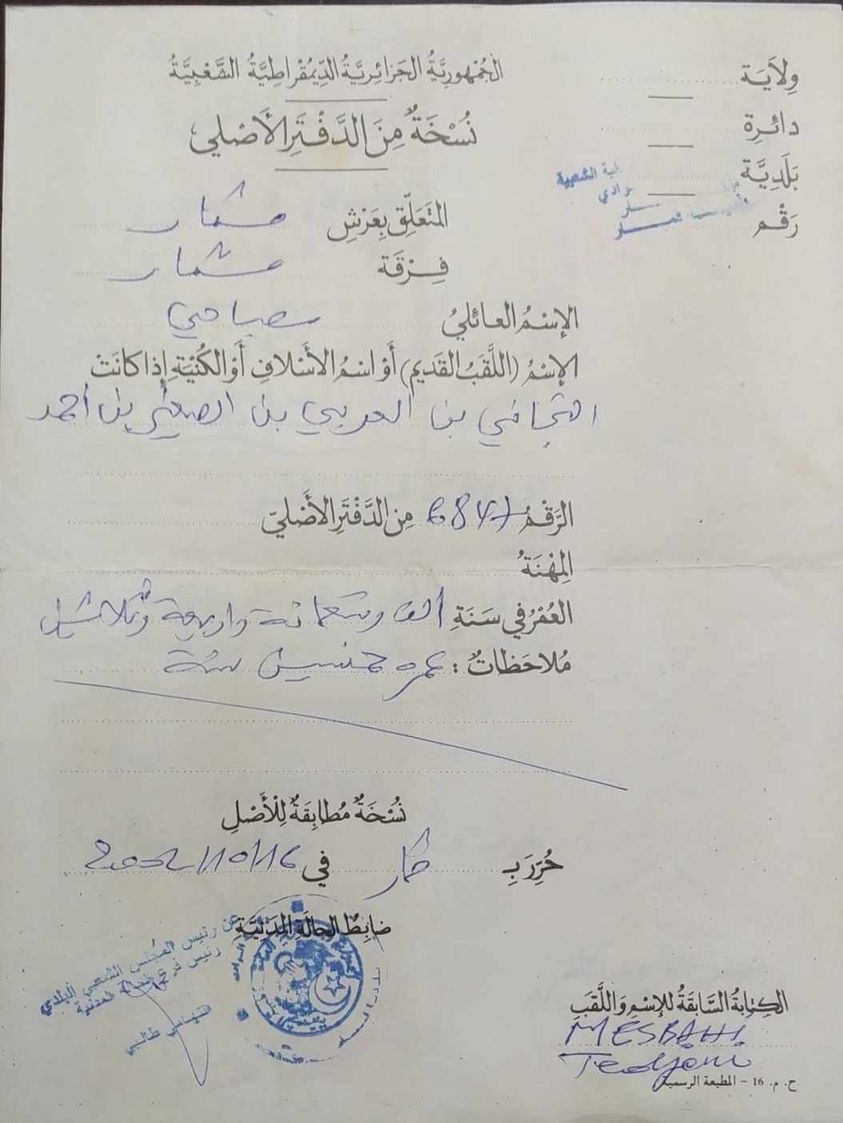 الجُمْهُورِيَّةُ الجَزَائِرِيَّةُ الدِّيمُقْرَاطِيَّةُ الشَّعْبِيَّةُ
وِلَايَة
دائرة
بَلَدِيَّة
رَقْم
نُسْخَةٌ مِنَ الدَّفْتَرِ الأَصْلِي
المتَعَلِّق بِعَرْشِ خمار
فِرْقَة خمار
الإِسْمُ العَائلِيُ مصباحي
الإِسْمُ (اللَّقَبُ القَدِيم) أَوْ اسْمُ الأَسْلَافِ أَوْ الكُنْيَةِ إِذَا كَانَتْ
التجاني بن العربي بن الصغير بن احمد
الرَّقْمُ 6847 مِنَ الدَّفْتَرِ الأَصْلِيّ
المِهْنَةُ
العُمْرُ فِي سَنَةِ الف وتسعمائة واربعة وثلاثين
مُلَاحَظَاتٌ : عمره خمسين سنة
نُسْخَةٌ مُطَابِقَةٌ لِلْأَصْلِ
حُرِّرَ بِ في
ضَابِطُ الحَالَةِ المَدَنِيَّةِ
عن رئيس المجلس الشعبي البلدي
الكِتَابَةُ السَّابِقَةُ لِلإِسْمِ وَاللَّقَبِ
MESBAHI
Tedjani
ح. م. 16 - المطبعة الرسمية